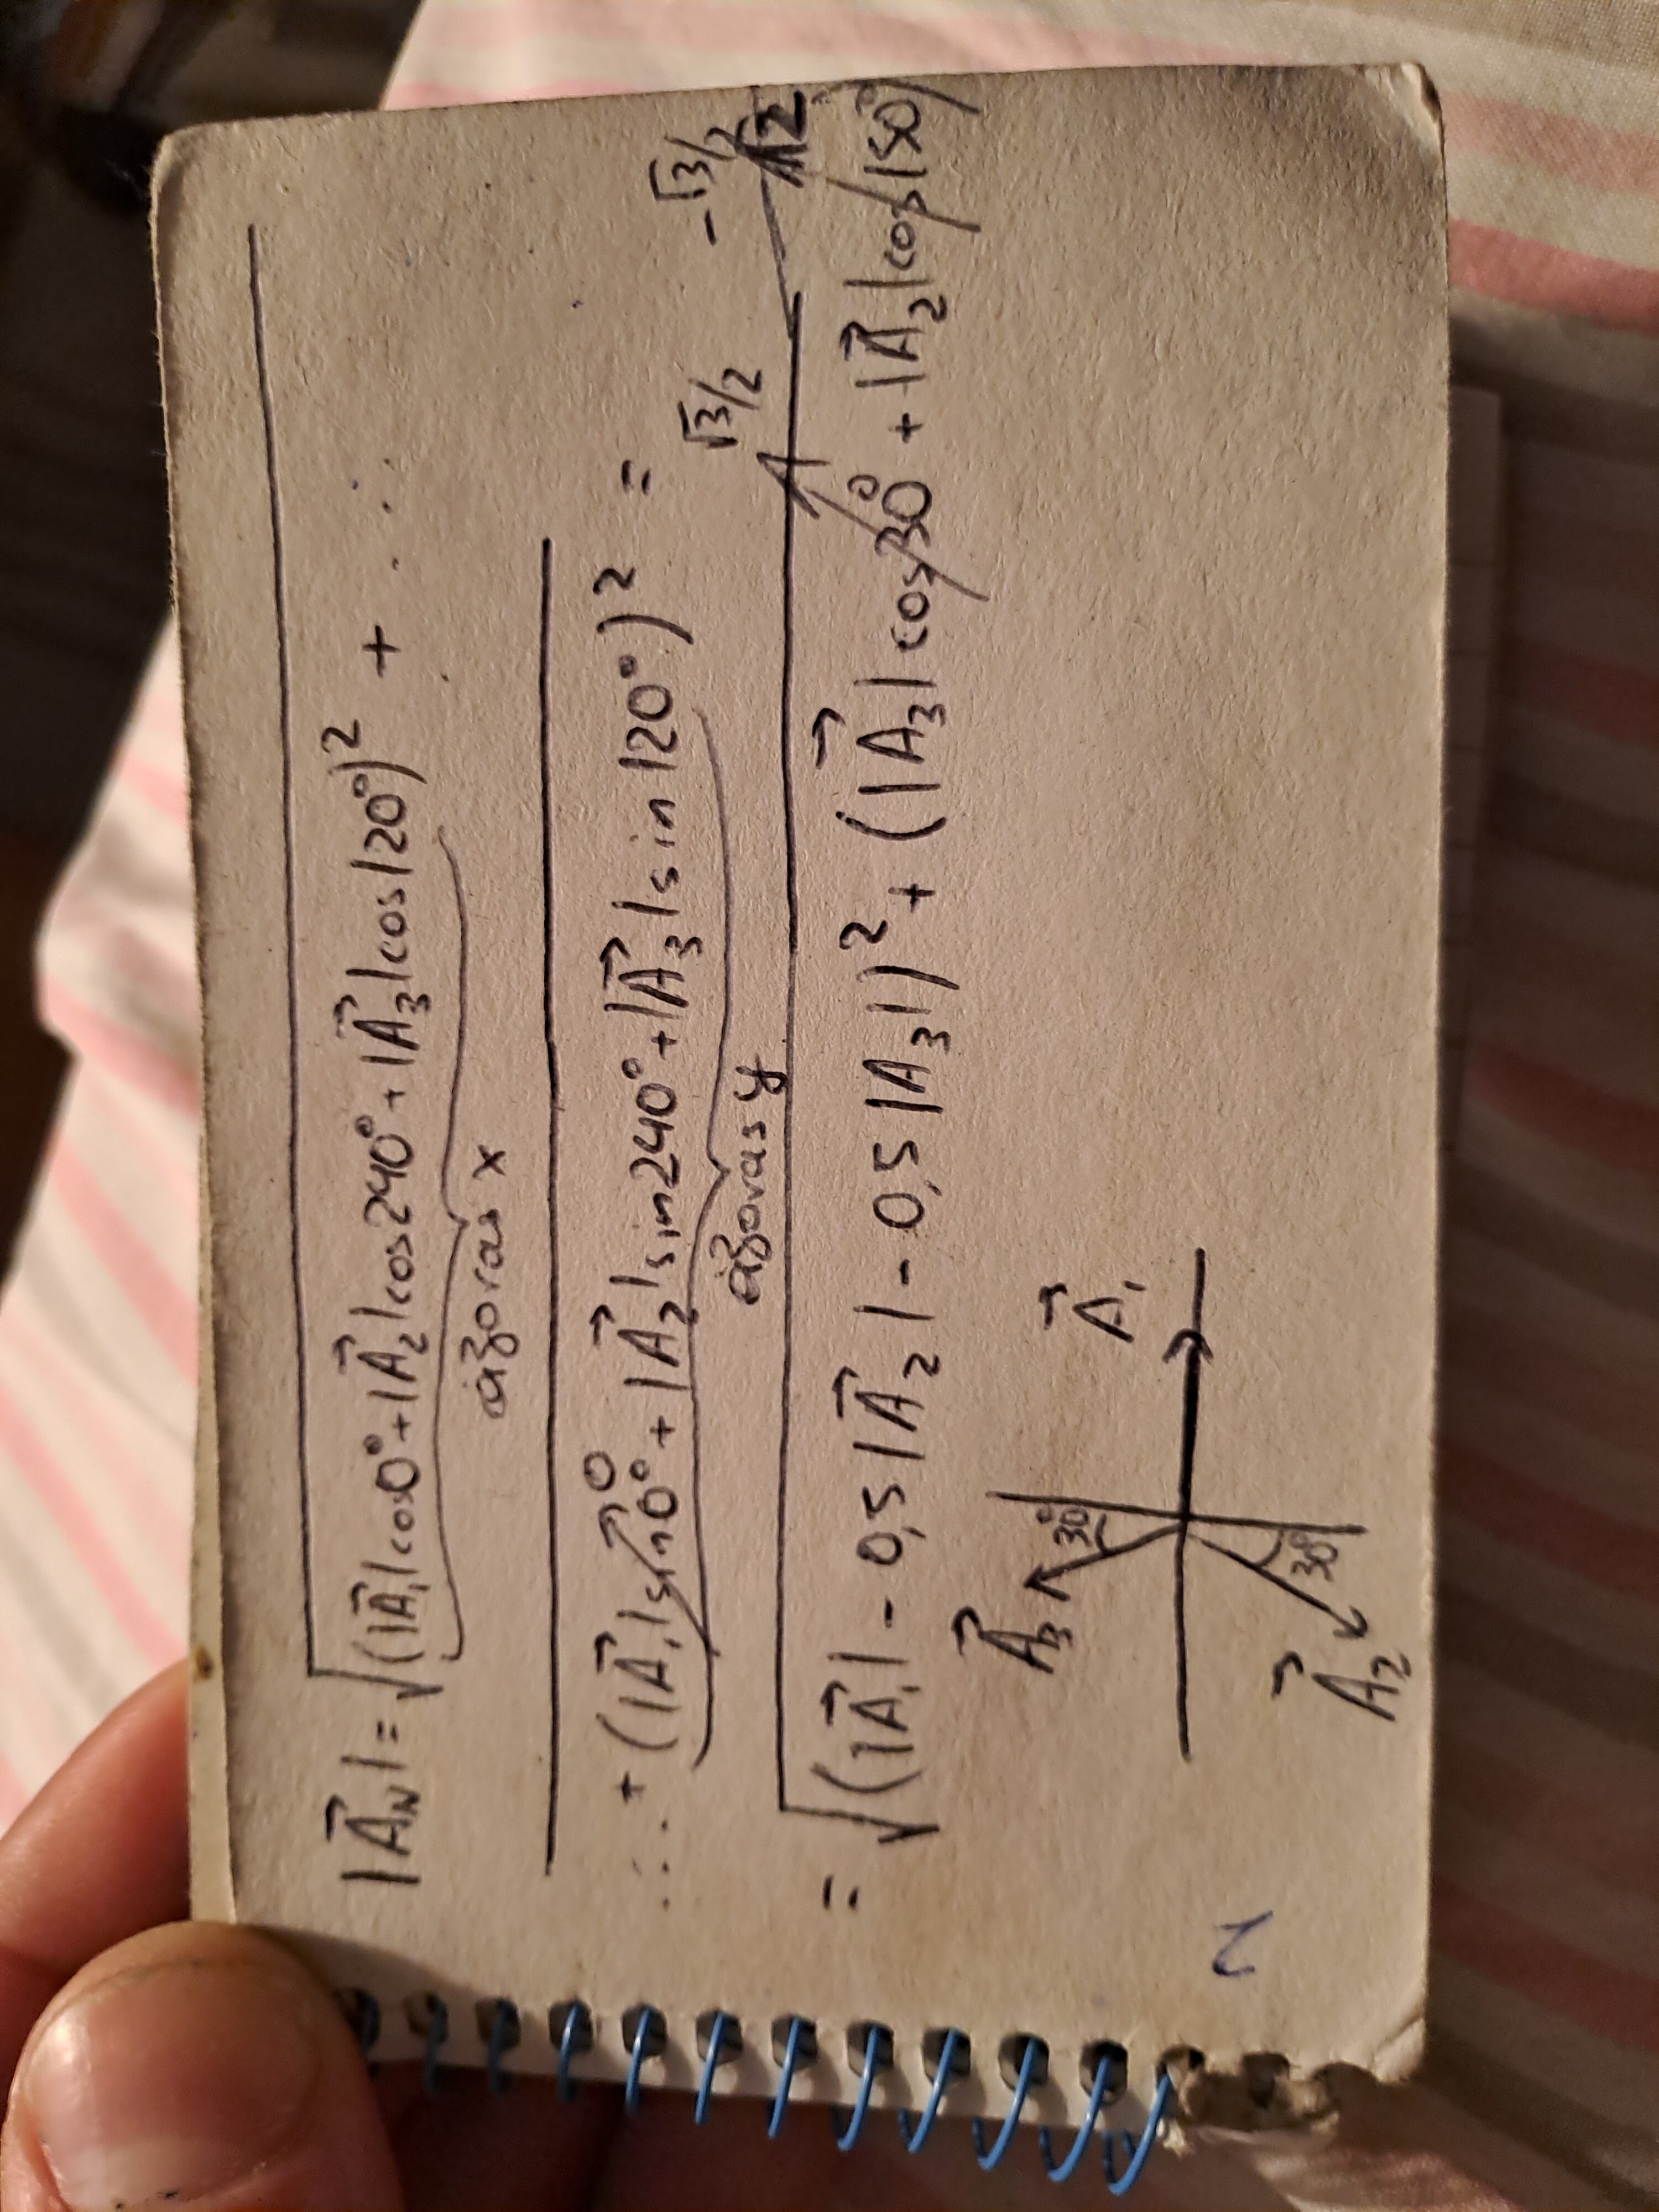 |A⃗ₙ| = √(|A⃗₁|cos0° + |A⃗₂|cos240° + |A⃗₃|cos120°)² + ...
άξονας x
... + (|A⃗₁|sin0° + |A⃗₂|sin240° + |A⃗₃|sin120°)² =
0
άξονας y
√3/2
-√3/2
= √(|A⃗₁| - 0,5|A⃗₂| - 0,5|A₃|)² + (|A⃗₃|cos30° + |A⃗₂|cos150°)
A⃗₃ 30° A⃗₁
A⃗₂ 30°
2